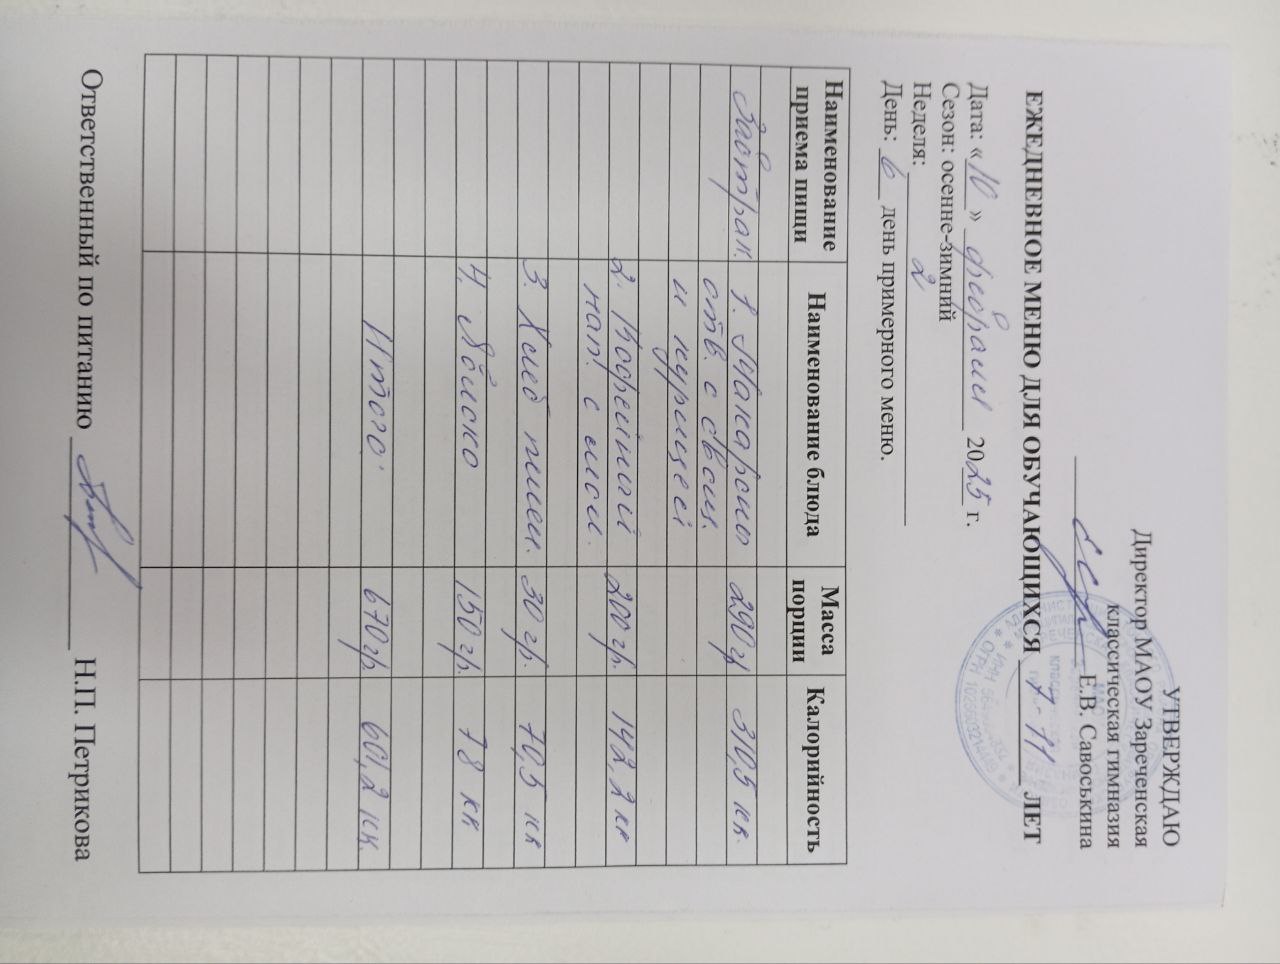 УТВЕРЖДАЮ
Директор МАОУ Зареченская
классическая гимназия
Е.В. Савоськина
ЕЖЕДНЕВНОЕ МЕНЮ ДЛЯ ОБУЧАЮЩИХСЯ 7-11 ЛЕТ
Дата: «10» февраля 2025 г.
Сезон: осенне-зимний
Неделя: 2
День: 6 день примерного меню.
Наименование приема пищи Наименование блюда Масса порции Калорийность
Завтрак. 1. Макароны 290гр 310,5 кк.
отв. с овощ.
и курицей
2. Кофейный 200гр. 142,2 кк
нап. с мол.
3. Хлеб пшен. 30гр. 70,5 кк
4. Яблоко 150гр. 78 кк
Итого: 670гр. 601,2 кк.
Ответственный по питанию Н.П. Петрикова